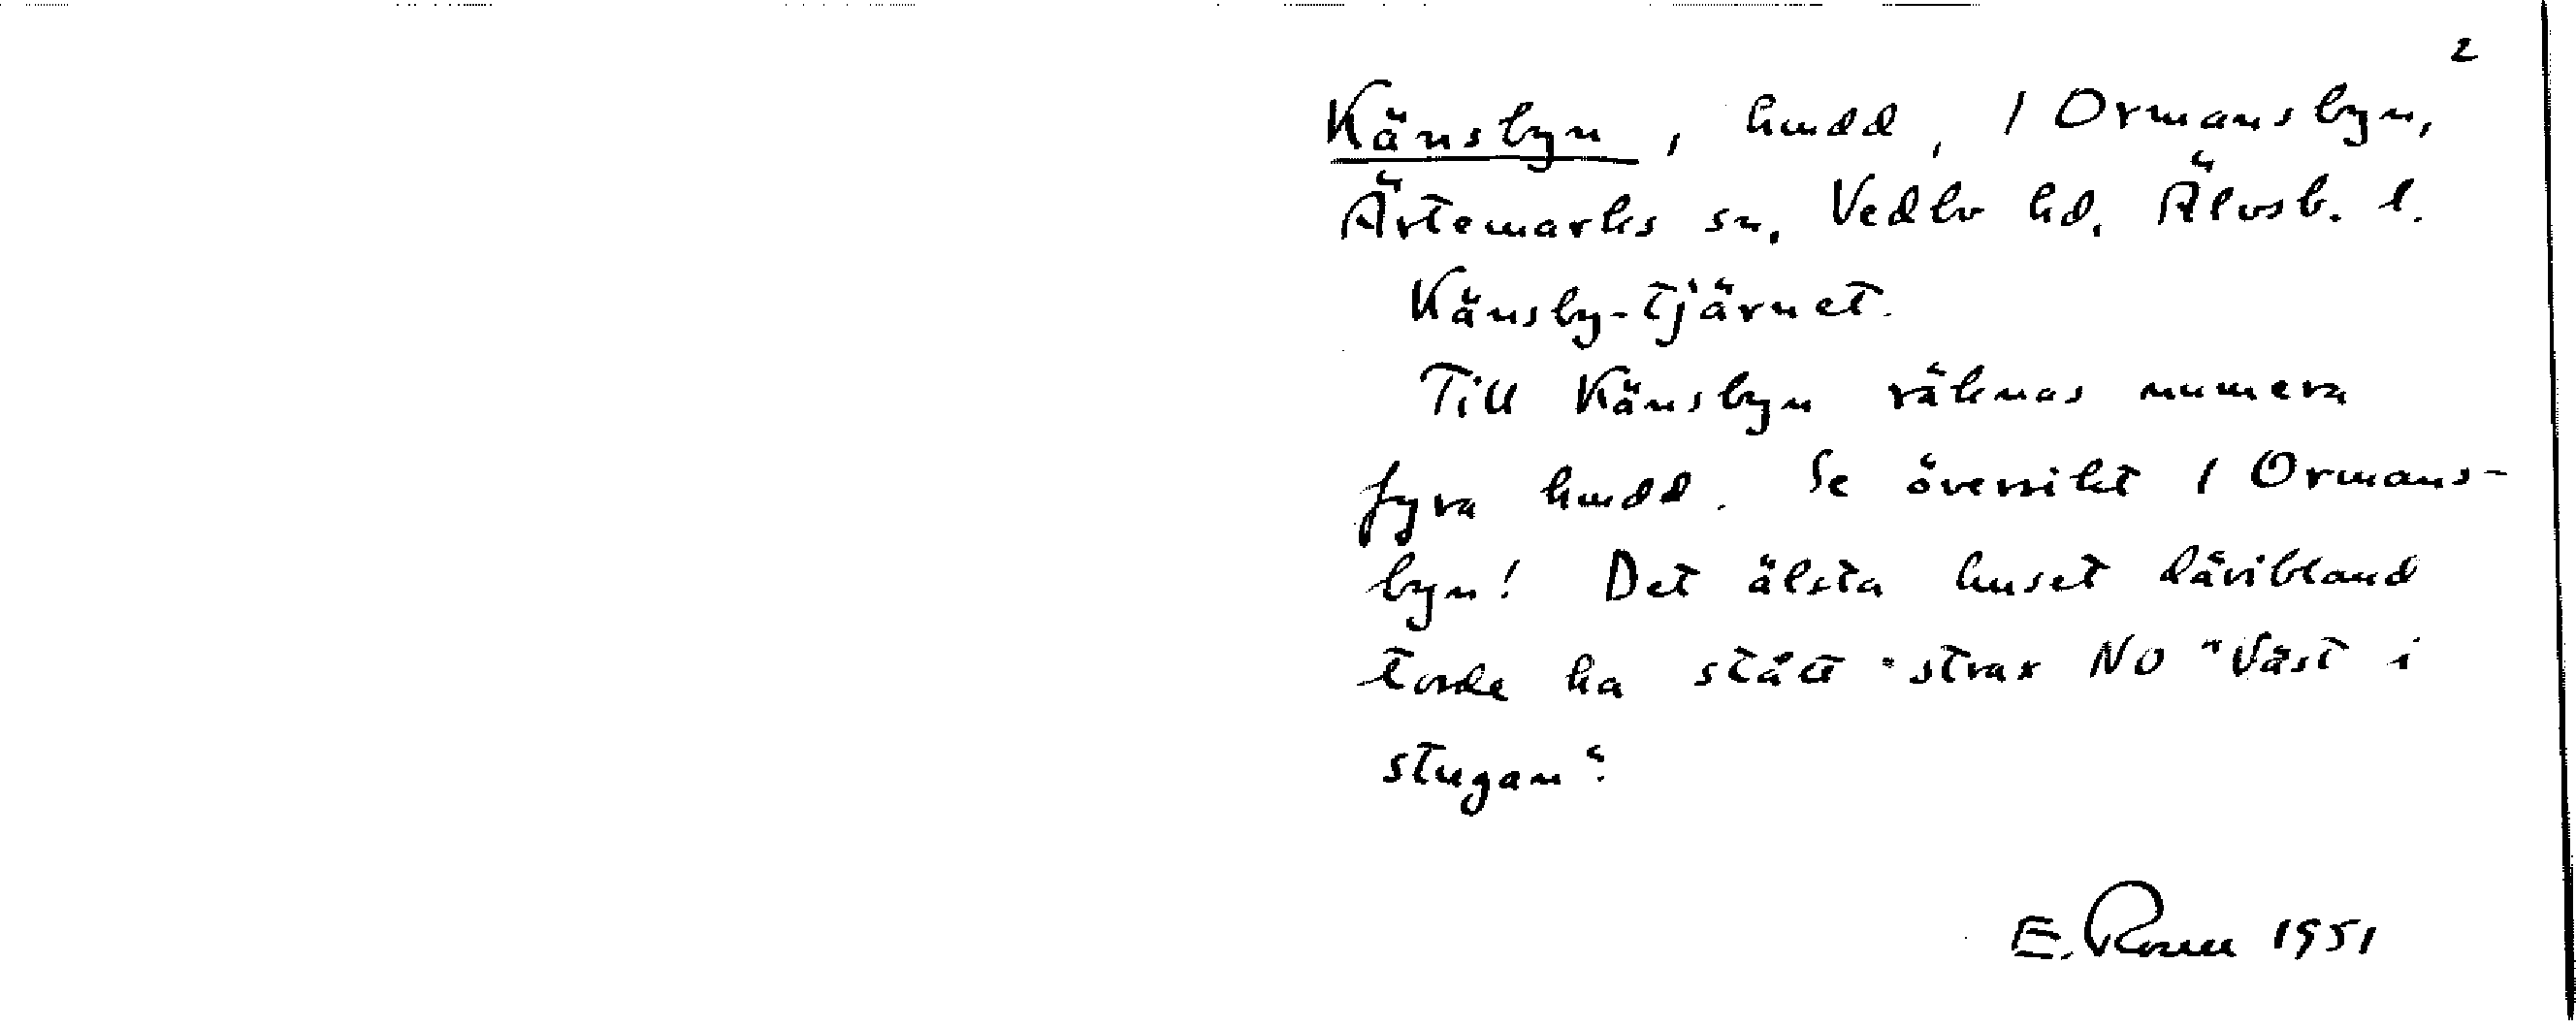 2
Känsbyn, hmdd, 1 Ormansbyn,
Ärtemarks sn. Vedbo hd. Älvsb. l.
Känsby-tjärnet.
Till Känsbyn räknas numera
fyra hmdd. Se översikt 1 Ormans-
byn! Det älsta huset däribland
torde ha stått strax NO "Väst i
stugan".
E. 1951